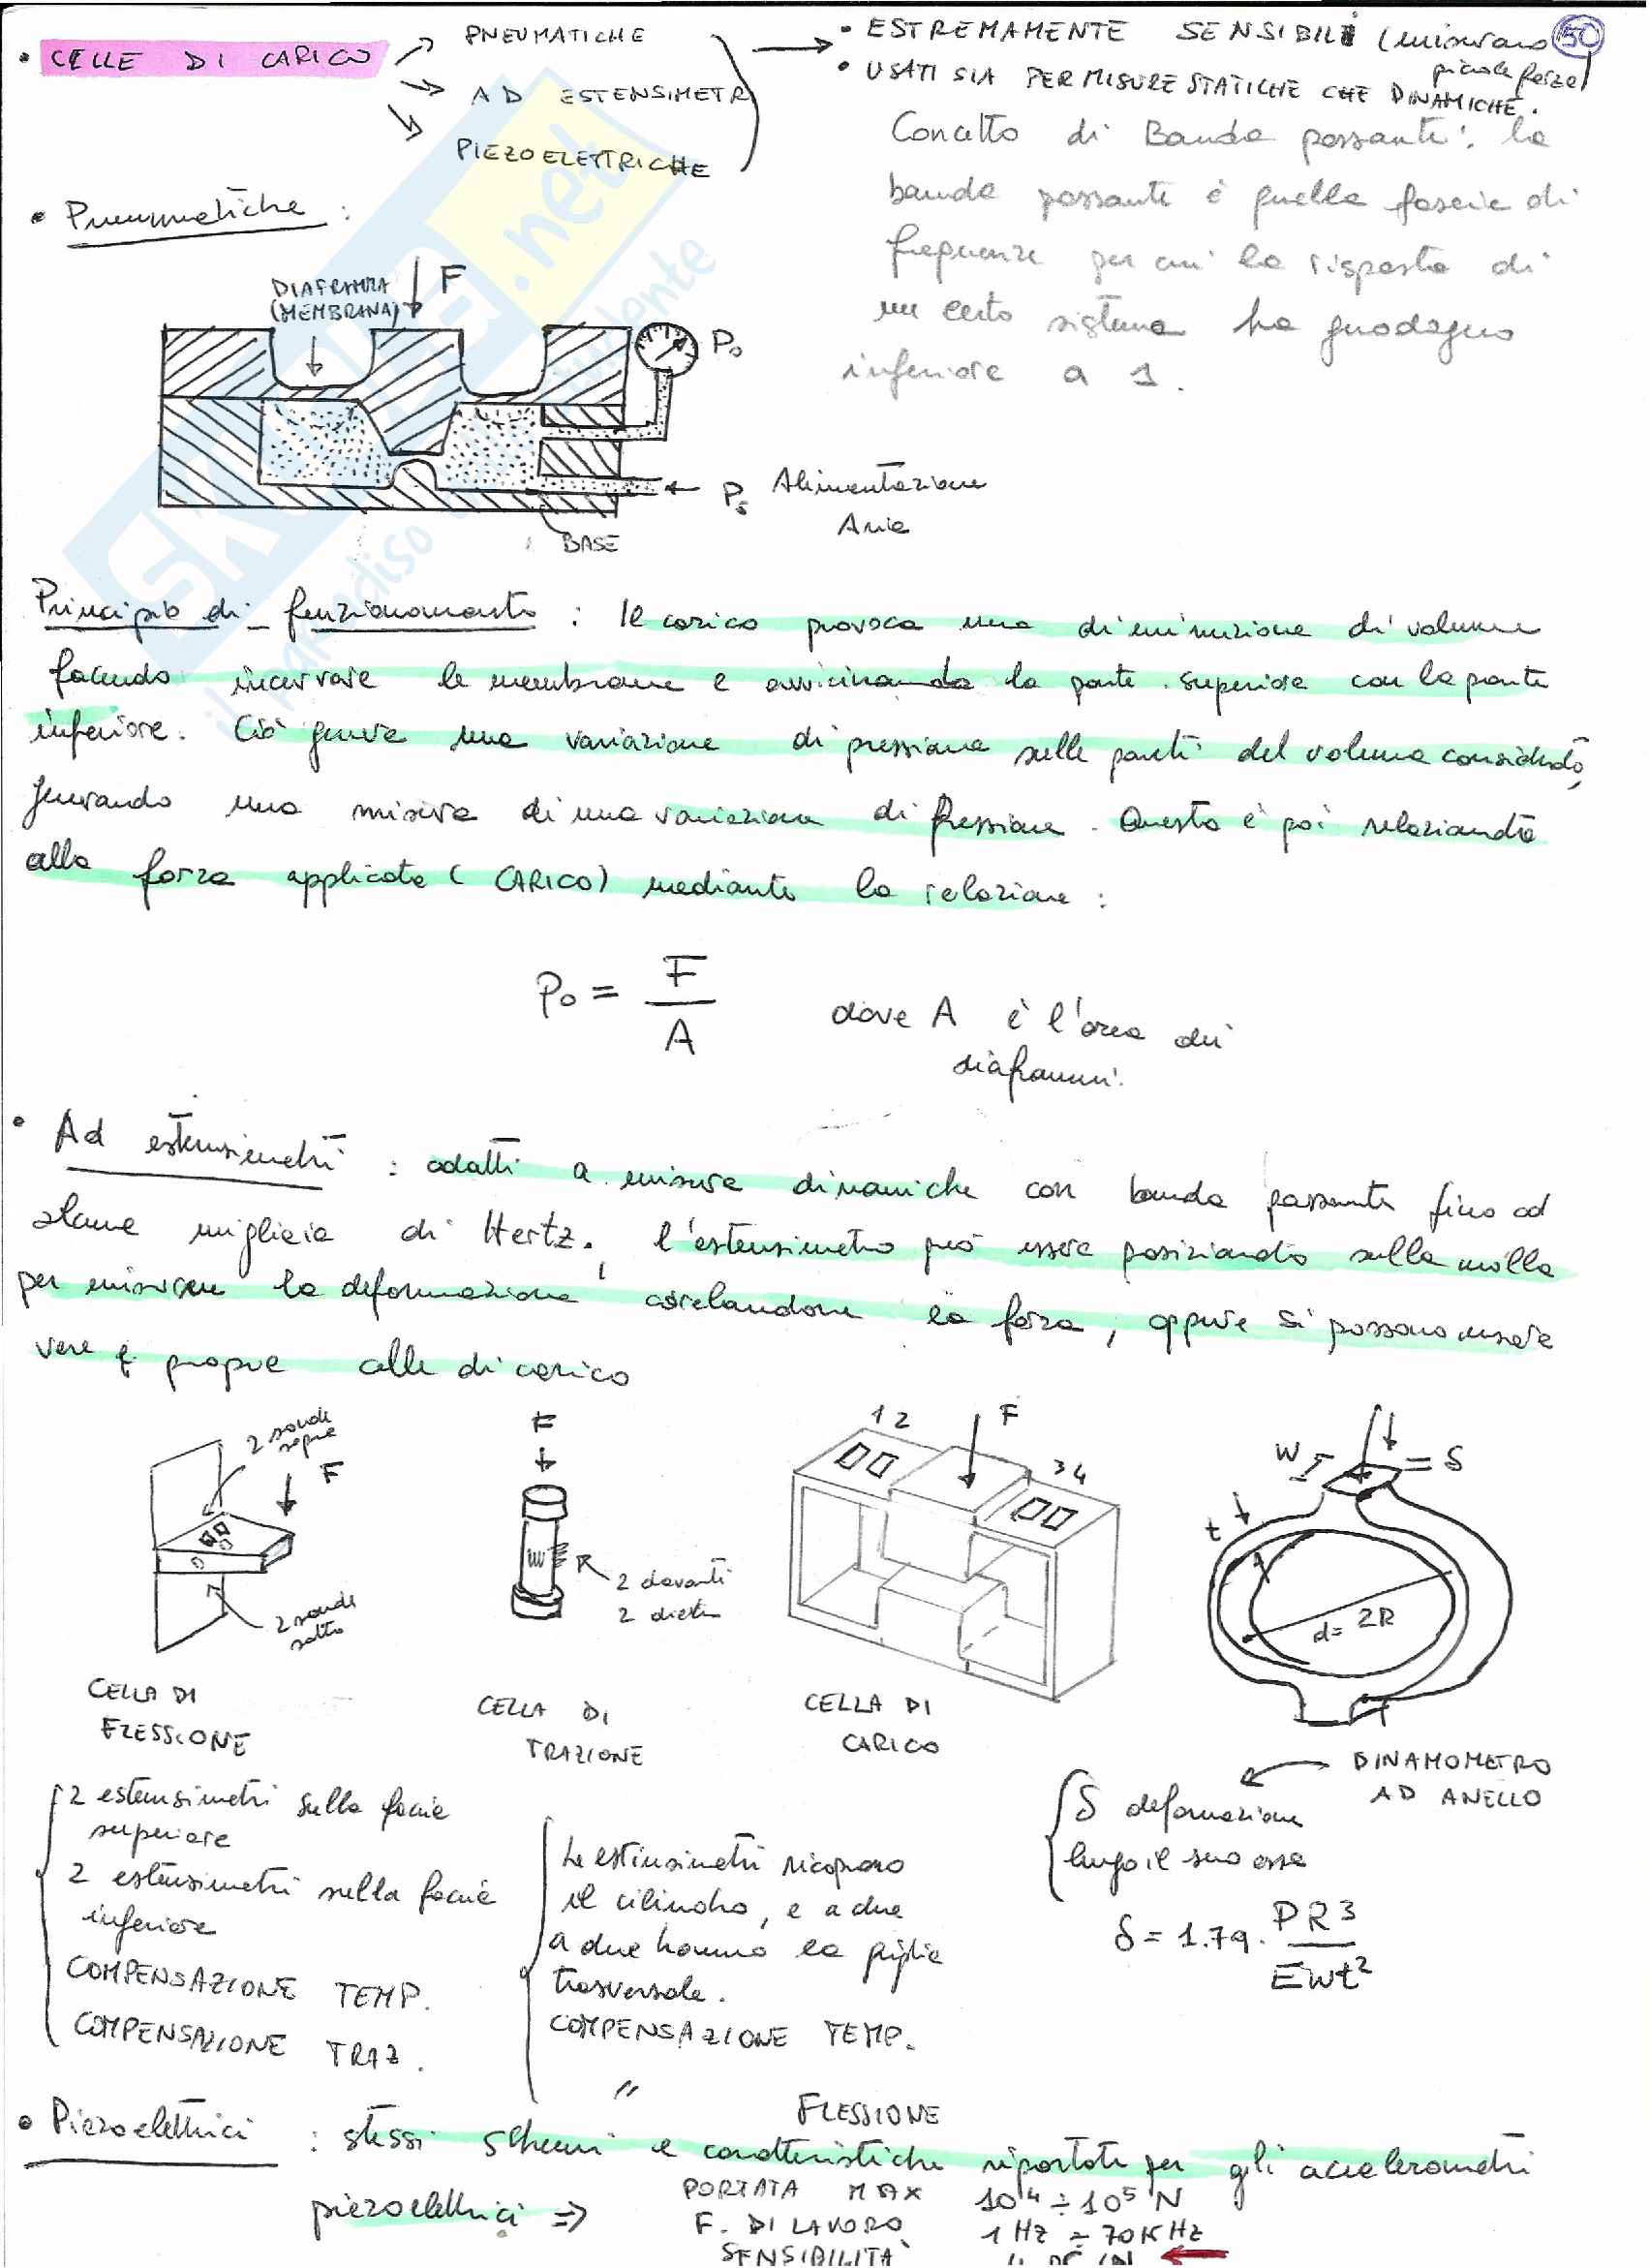 • CELLE DI CARICO
PNEUMATICHE
AD ESTENSIMETRI
PIEZOELETTRICHE
• ESTREMAMENTE SENSIBILI (misurano piccole forze)
50
• USATI SIA PER MISURE STATICHE CHE DINAMICHE.
Concetto di Banda passante: la
banda passante è quella fascia di
frequenze per cui la risposta di
un certo sistema ha guadagno
inferiore a 1.
• Pneumatiche :
DIAFRAMMA
(MEMBRANA)
F
Po
Ps Alimentazione
Aria
BASE
SKUOLA.net
il paradiso dello studente
Principio di funzionamento : Il carico provoca una diminuzione di volume
facendo incurvare le membrane e avvicinando la parte superiore con la parte
inferiore. Ciò genera una variazione di pressione sulle pareti del volume considerato,
generando una misura di una variazione di pressione. Questa è poi relazionata
alla forza applicata (CARICO) mediante la relazione :
Po = F / A dove A è l'area dei
diaframmi.
• Ad estensimetri : adatti a misure dinamiche con banda passante fino ad
alcune migliaia di Hertz. l'estensimetro può essere posizionato sulla molla
per misurare la deformazione correlandone la forza, oppure si possono usare
vere e proprie celle di carico
2 sonde
sopra
F
2 sonde
sotto
F
R
2 davanti
2 dietro
1 2
F
3 4
W
= δ
t
d = 2R
CELLA DI
FLESSIONE
CELLA DI
TRAZIONE
CELLA DI
CARICO
DINAMOMETRO
AD ANELLO
2 estensimetri sulla faccia
superiore
2 estensimetri sulla faccia
inferiore
COMPENSAZIONE TEMP.
COMPENSAZIONE TRAZ.
Le estensimetri ricoprono
il cilindro, e a due
a due hanno la griglia
trasversale.
COMPENSAZIONE TEMP.
" FLESSIONE
δ deformazione
lungo il suo asse
δ = 1.79 · PR³ / Ewt²
• Piezoelettrici : stessi schemi e caratteristiche riportate per gli accelerometri
piezoelettrici ⇒ PORTATA MAX 10⁴ ÷ 10⁵ N
F. DI LAVORO 1 Hz ÷ 70 KHz
SENSIBILITÀ